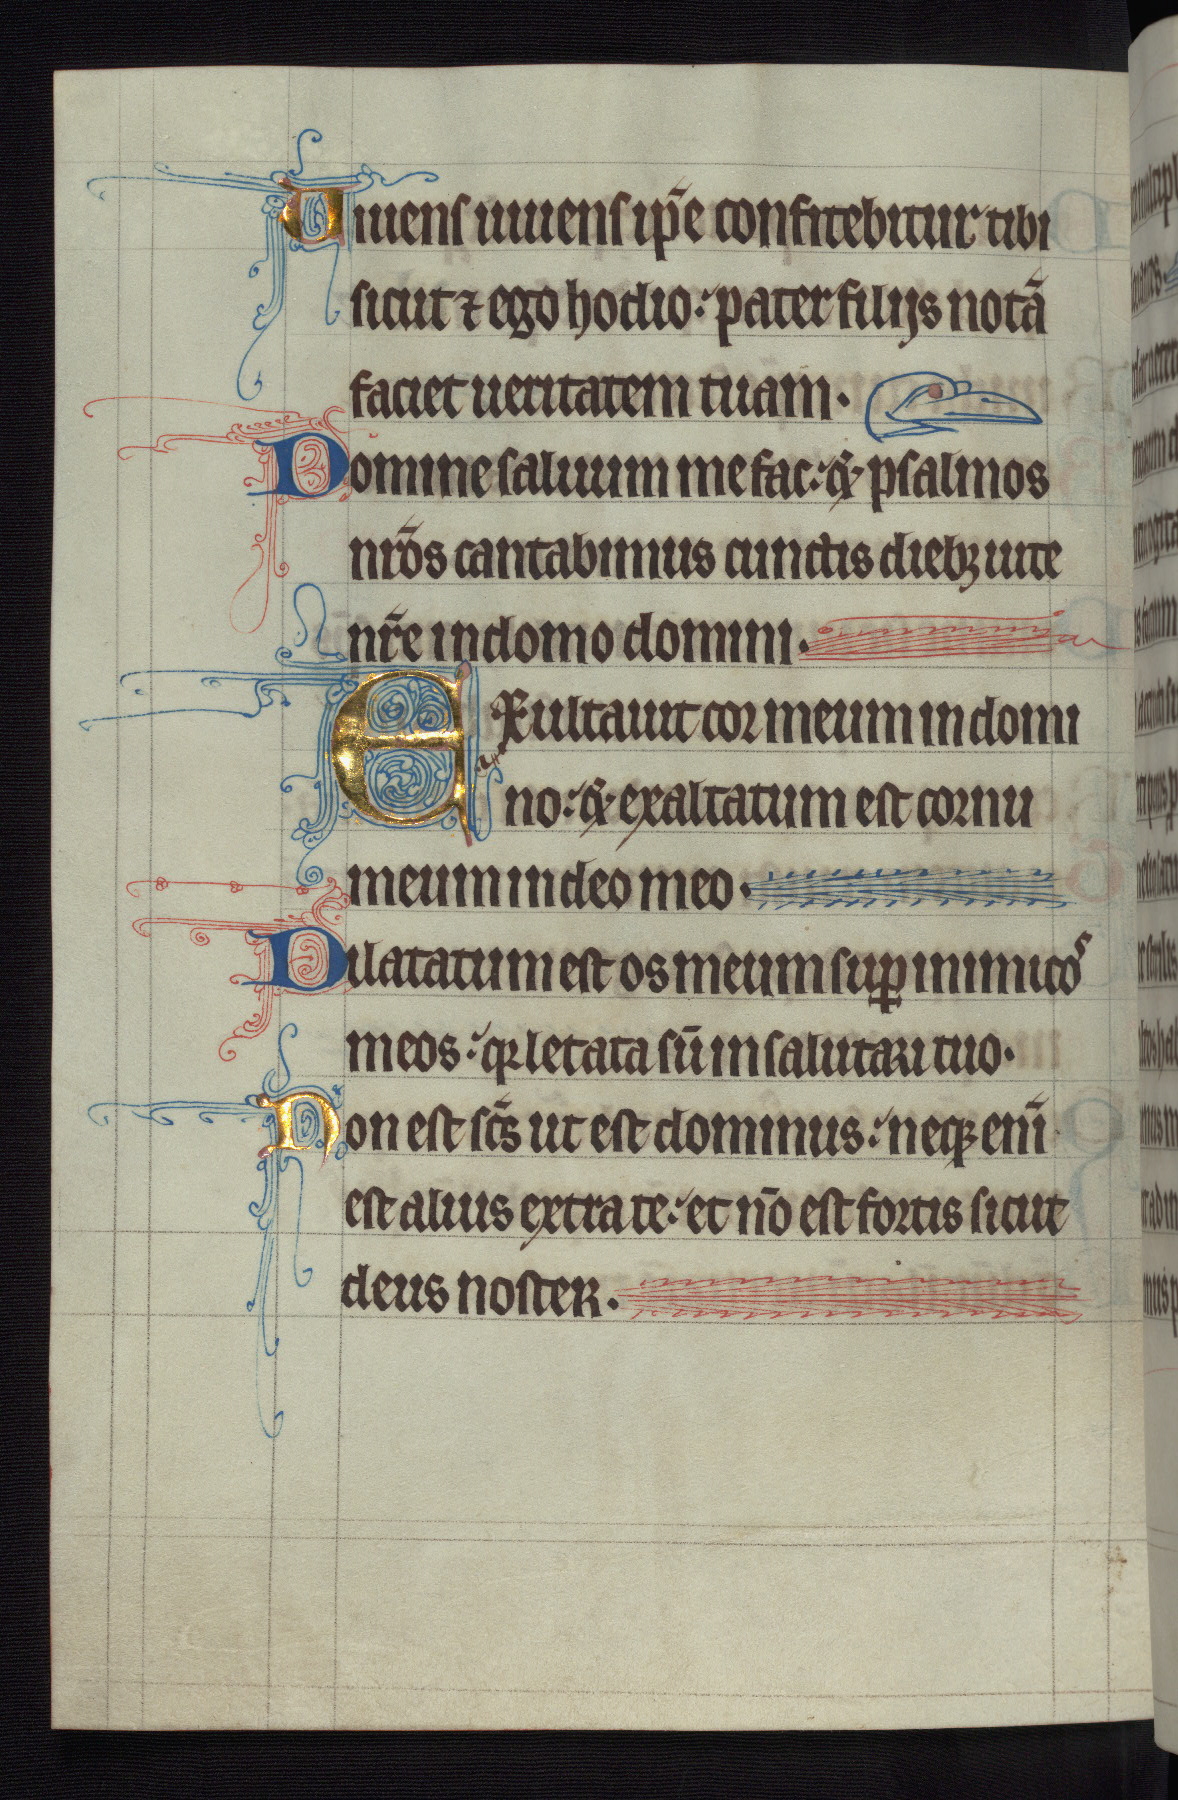 Uiuens uiuens ip̄e confitebitur tibi
sicut ⁊ ego hodie: pater filijs notā
faciet ueritatem tuam.
Domine saluum me fac: ⁊ psalmos
nr̄os cantabimus cunctis dieb; uite
nr̄e in domo domini.
Exultauit cor meum in domi
no: ⁊ exaltatum est cornu
meum in deo meo.
Dilatatum est os meum suꝑ inimicos
meos: qr letata sū in salutari tuo.
Non est sc̄s ut est dominus: neq; enī
est alius extra te: et nō est fortis sicut
deus noster.